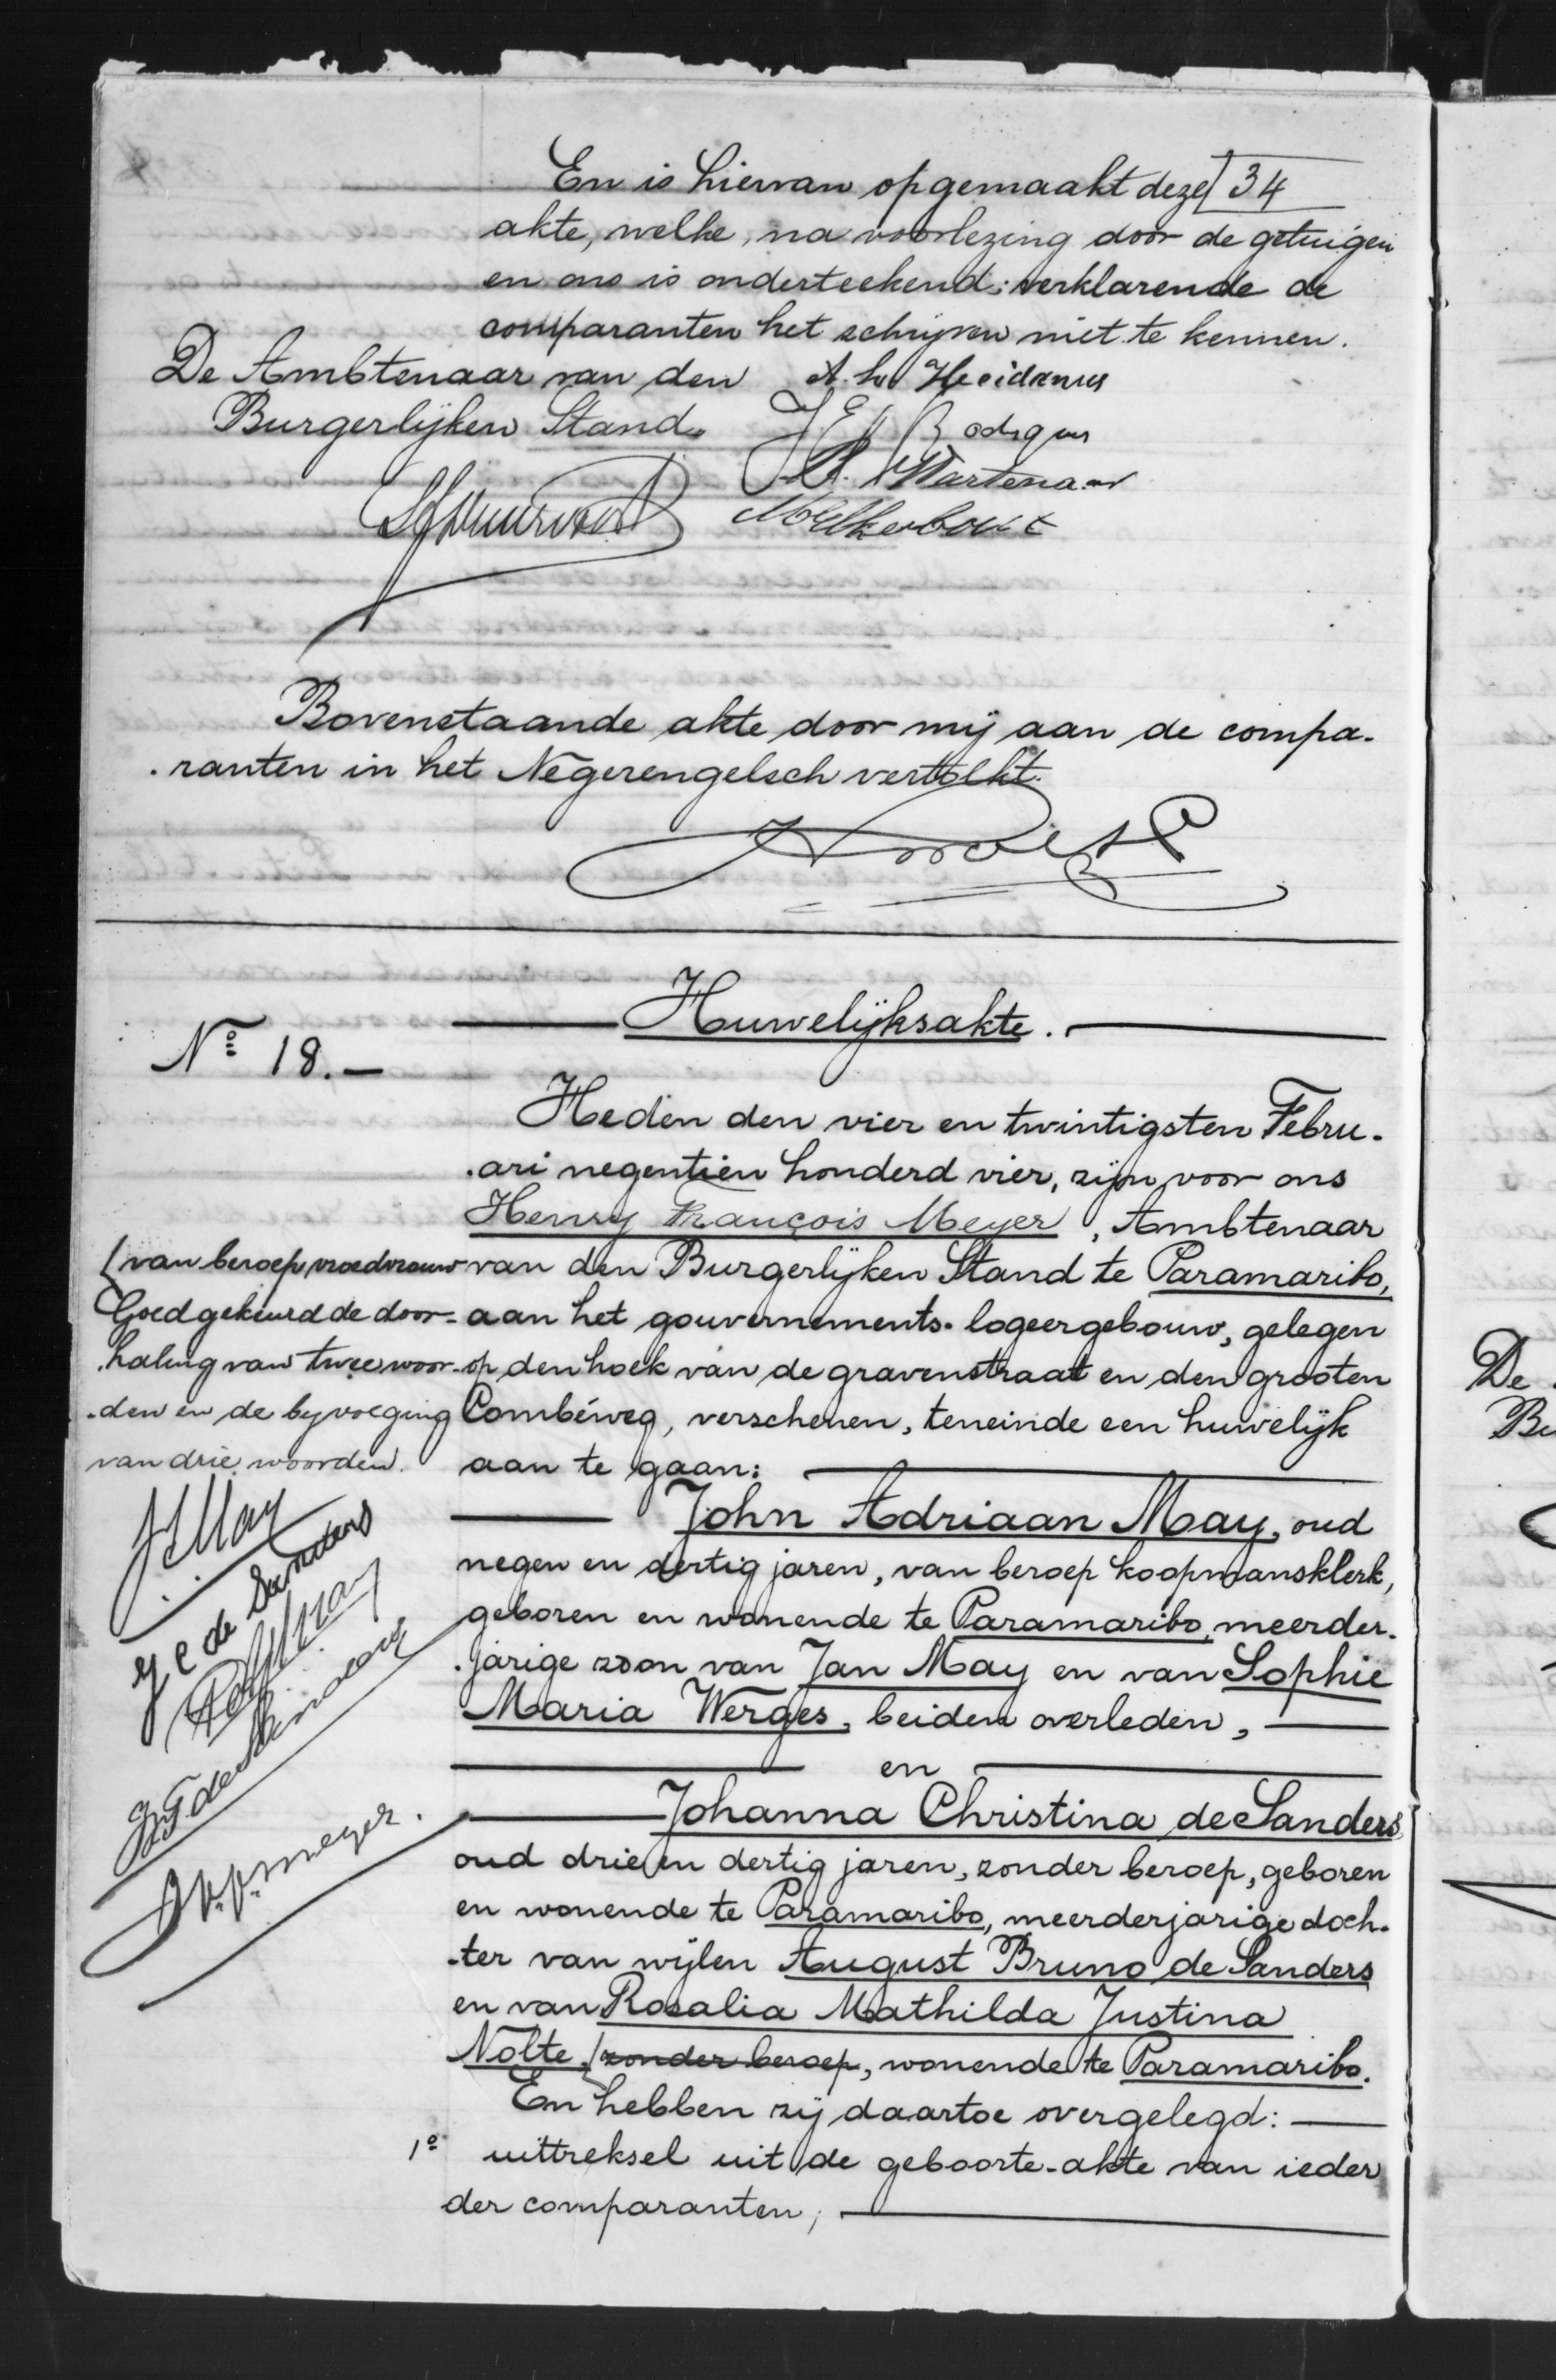 En is hiervan opgemaakt deze 34
akte, welke, na voorlezing door de getuigen
en ons is onderteekend; verklarende de
comparanten het schrijven niet te kennen.
De Ambtenaar van den
Burgerlijken Stand.
A. h. Heidanus
Wartenaar
Bovenstaande akte door mij aan de compa-
ranten in het Negerengelsch vertolkt.
Huwelijksakte.
No 18.—
Heden den vier en twintigsten Febru-
ari negentien honderd vier, zijn voor ons
Henry François Meyer, Ambtenaar
van den Burgerlijken Stand te Paramaribo,
aan het gouvernements-logeergebouw, gelegen
op den hoek van de gravenstraat en den grooten
Combéweg, verschenen, teneinde een huwelijk
aan te gaan:
John Adriaan May, oud
negen en dertig jaren, van beroep koopmansklerk,
geboren en wonende te Paramaribo, meerder-
jarige zoon van Jan May en van Sophie
Maria Werges, beiden overleden,
en
Johanna Christina de Sanders
oud drie en dertig jaren, zonder beroep, geboren
en wonende te Paramaribo, meerderjarige doch-
ter van wijlen August Bruno de Sanders
en van Rosalia Mathilda Justina
Nolte, zonder beroep, wonende te Paramaribo.
En hebben zij daartoe overgelegd:
1o uittreksel uit de geboorte-akte van ieder
der comparanten;
van beroep vroedvrouw
Goedgekeurd de door-
haling van twee woor-
den en de bijvoeging
van drie woorden.
J A May
J C de Sanders
H. F. Meyer.
De